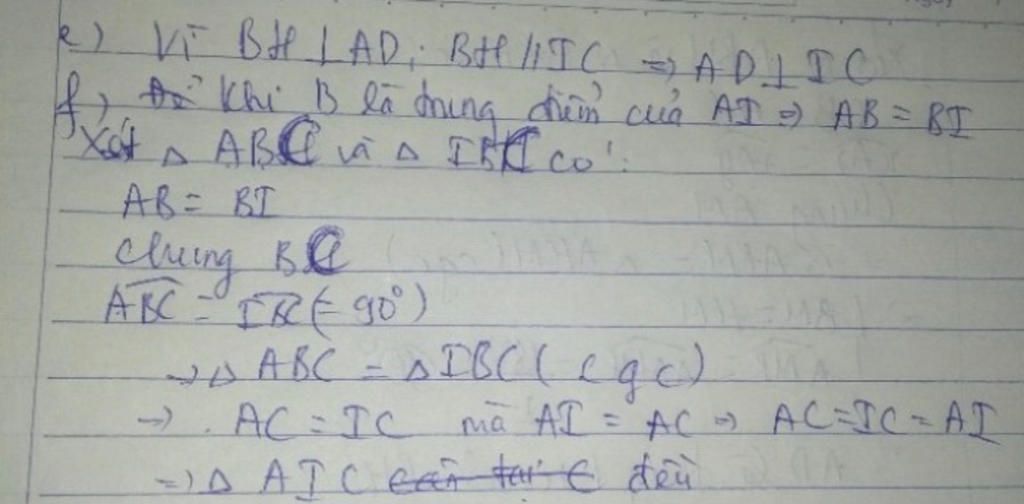 e) Vì BH ⊥ AD; BH // IC => AD ⊥ IC
f) Khi B là trung điểm của AI => AB = BI
Xét △ ABC và △ IBC có:
AB = BI
Chung BC
ABC = IBC (= 90°)
→ △ ABC = △ IBC ( c g c)
→ AC = IC mà AI = AC => AC = IC = AI
=> △ AIC cân tại C đều